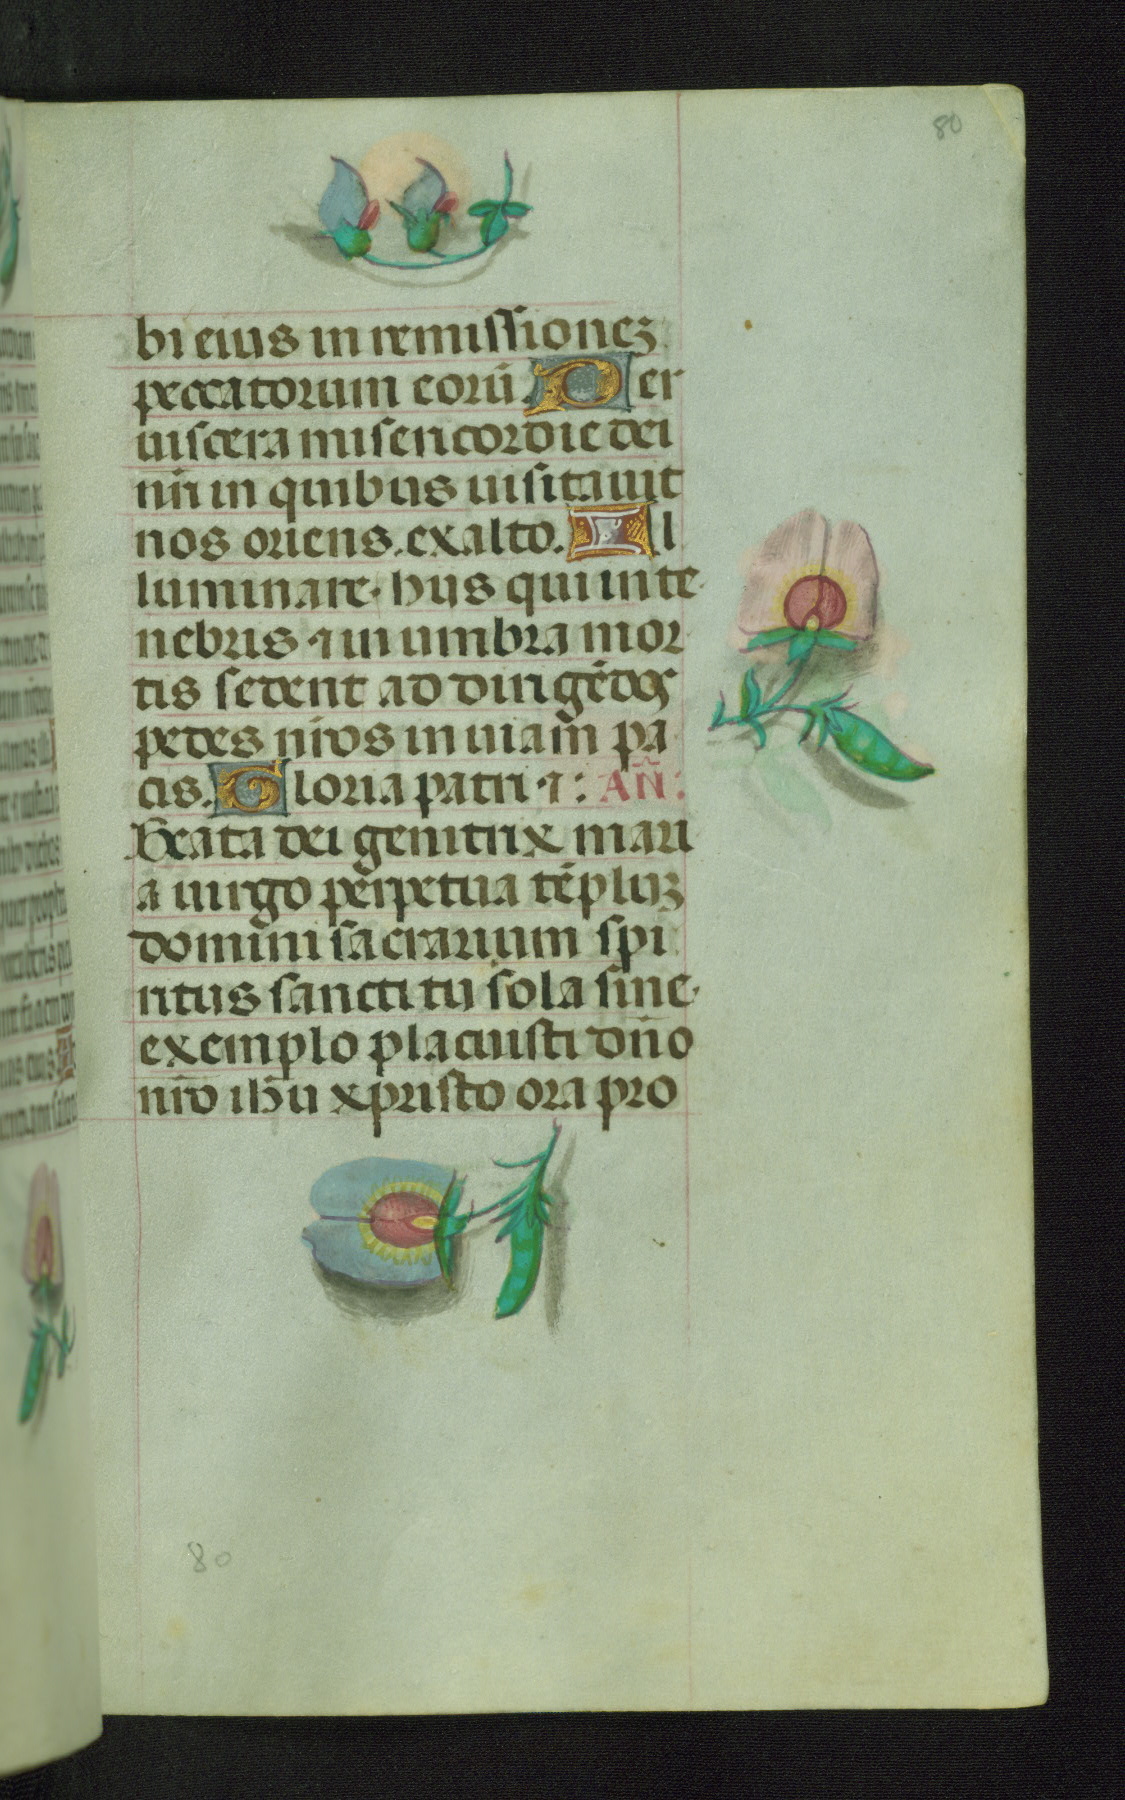 80
bi eius in remissionez
peccatorum eorū. Per
uiscera misericordie dei
nr̄i in quibus uisitauit
nos oriens. exalto. Il
luminare. hijs qui in te
nebris ⁊ in umbra mor
tis sedent ad dirigēdos
pedes nr̄os in uiam pa
cis. Gloria patri ⁊: AÑ:
Beata dei genitrix mari
a uirgo perpetua tēpluz
domini sacrarium spi
ritus sancti tu sola sine
exemplo placuisti dn̄o
nr̄o ihū xpristo ora pro
80